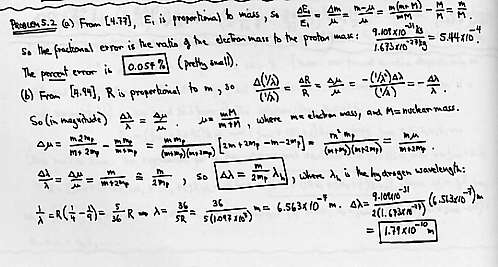 PROBLEM 5.2 (a) From [4.77], E₁ is proportional to mass, so ΔE₁/E₁ = Δm/μ = (m-μ)/μ = m(m+M)/mM - M/M = m/M.
So the fractional error is the ratio of the electron mass to the proton mass: 9.109×10⁻³¹ kg / 1.673×10⁻²⁷ kg = 5.44×10⁻⁴.
The percent error is 0.054 % (pretty small).
(b) From [4.94], R is proportional to m, so Δ(1/λ)/(1/λ) = ΔR/R = Δμ/μ = -(1/λ²)Δλ/(1/λ) = -Δλ/λ.
So (in magnitude) Δλ/λ = Δμ/μ. μ = mM/(m+M), where m = electron mass, and M = nuclear mass.
Δμ = m2mₚ/(m+2mₚ) - mmₚ/(m+mₚ) = mmₚ/((m+mₚ)(m+2mₚ)) [2m+2mₚ-m-2mₚ] = m²mₚ/((m+mₚ)(m+2mₚ)) = mμ/(m+2mₚ).
Δλ/λ = Δμ/μ = m/(m+2mₚ) ≅ m/2mₚ, so Δλ = m/2mₚ λₕ, where λₕ is the hydrogen wavelength:
1/λ = R(1/4 - 1/9) = 5/36 R ⇒ λ = 36/5R = 36/(5(1.097×10⁷)) m = 6.563×10⁻⁷ m. Δλ = 9.109×10⁻³¹/(2(1.673×10⁻²⁷)) (6.563×10⁻⁷) m
= 1.79×10⁻¹⁰ m